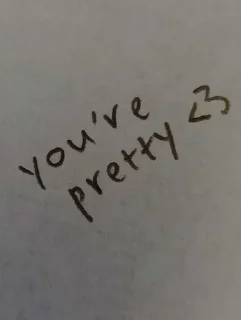 you've
pretty <3